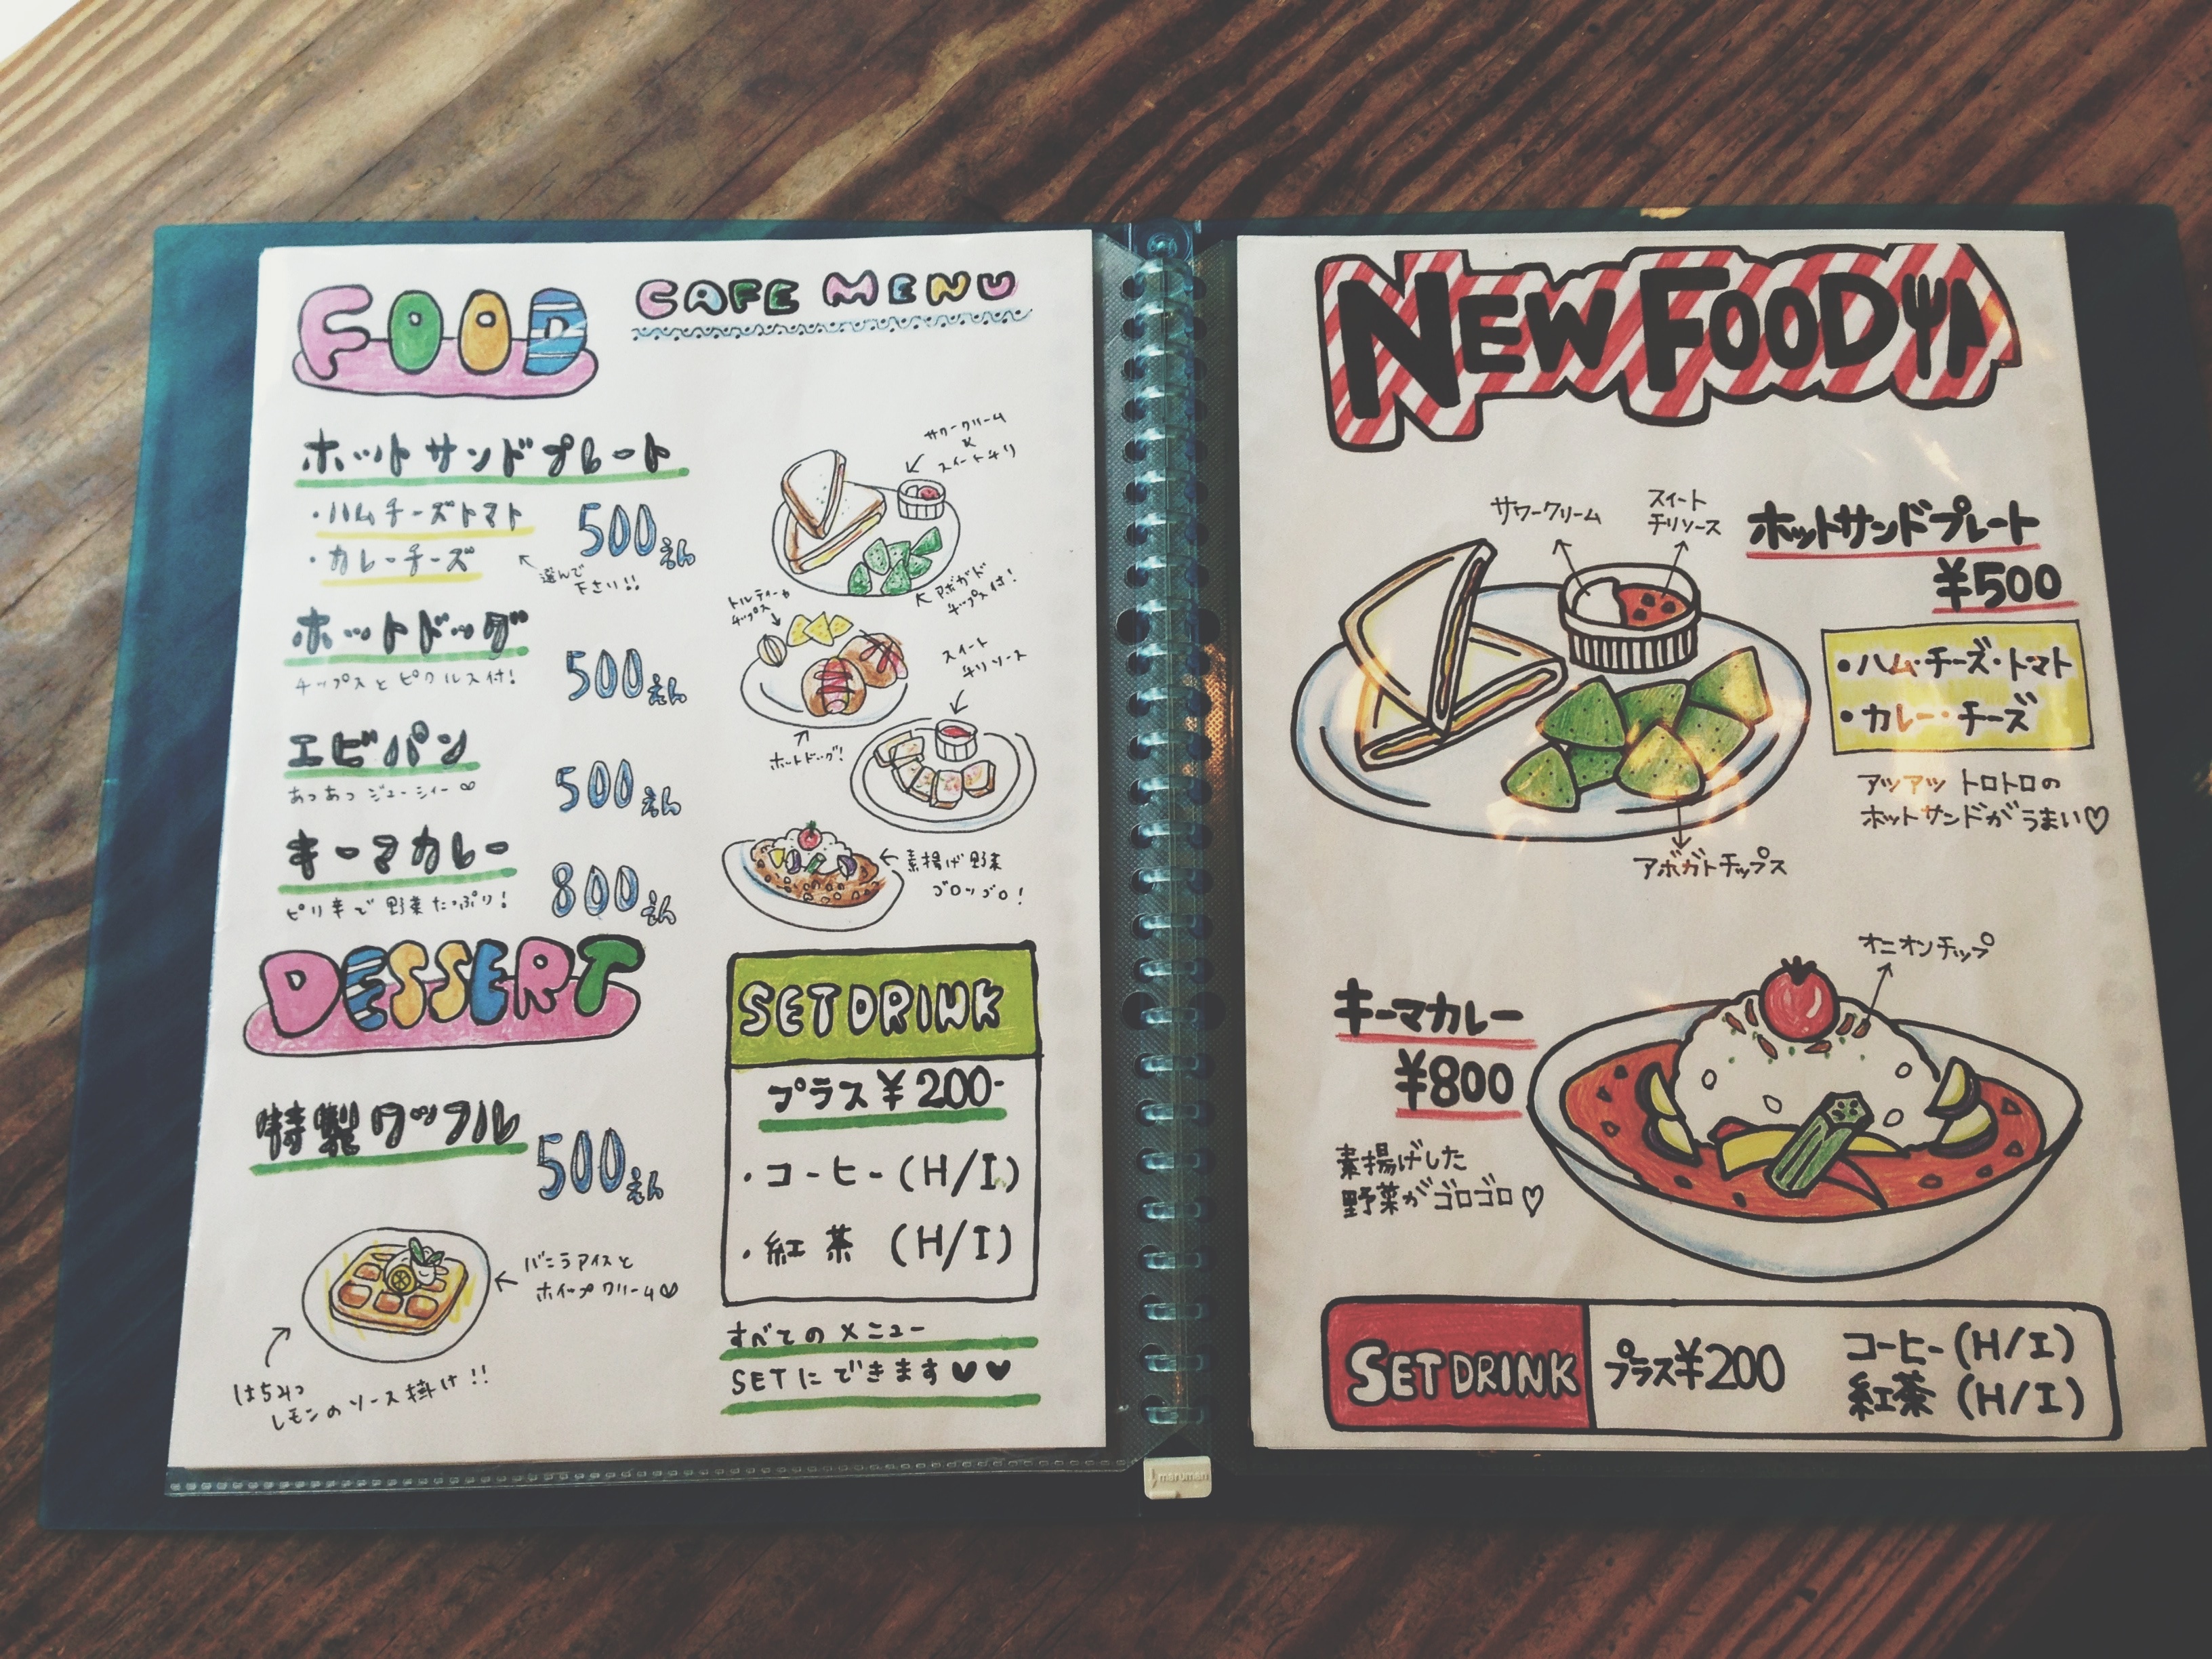 FOOD
CAFE MENU
ホットサンドプレート
・ハムチーズトマト
・カレーチーズ
500えん
選んで
下さい!!
サワークリーム
&
スイートチリ
アボガド
チップス付!
ホットドッグ
チップスとピクルス付!
500えん
トルティーヤ
チップス
ホットドッグ!
エビパン
あつあつジューシィー♡
500えん
スイート
チリソース
キーマカレー
ピリ辛で野菜たっぷり!
800えん
素揚げ野菜
ゴロッゴロ!
DESSERT
特製ワッフル
500えん
バニラアイスと
ホイップクリーム♡
はちみつ
レモンのソース掛け!!
SET DRINK
プラス¥200-
・コーヒー(H/I)
・紅茶(H/I)
すべてのメニュー
SETにできます♥♥
NEW FOOD
サワークリーム
スイート
チリソース
ホットサンドプレート
¥500
・ハム・チーズ・トマト
・カレー・チーズ
アツアツトロトロの
ホットサンドがうまい♡
アボガトチップス
オニオンチップ
キーマカレー
¥800
素揚げした
野菜がゴロゴロ♡
SET DRINK
プラス¥200
コーヒー(H/I)
紅茶(H/I)
maruman